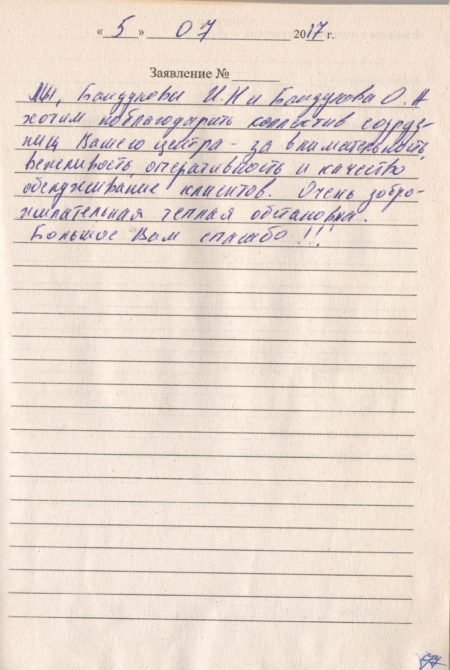 « 5 » 07 2017 г.
Заявление №
Мы, Бондукова И.Н и Бондукова О.А
хотим поблагодарить коллектив сотруд-
ниц Вашего центра - за внимательность,
вежливость, оперативность и качество
обслуживание клиентов. Очень добро-
желательная теплая обстановка.
Большое Вам спасибо!!!